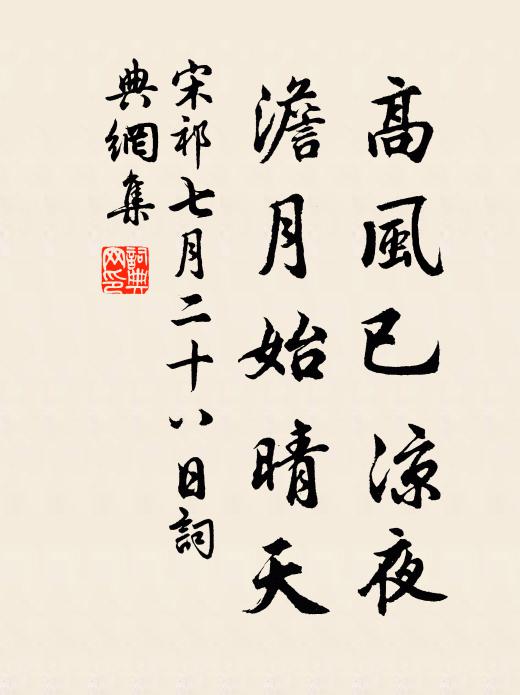 高風已凉夜
澹月始晴天
宋祁七月二十八日詞
典網集
詞典網印